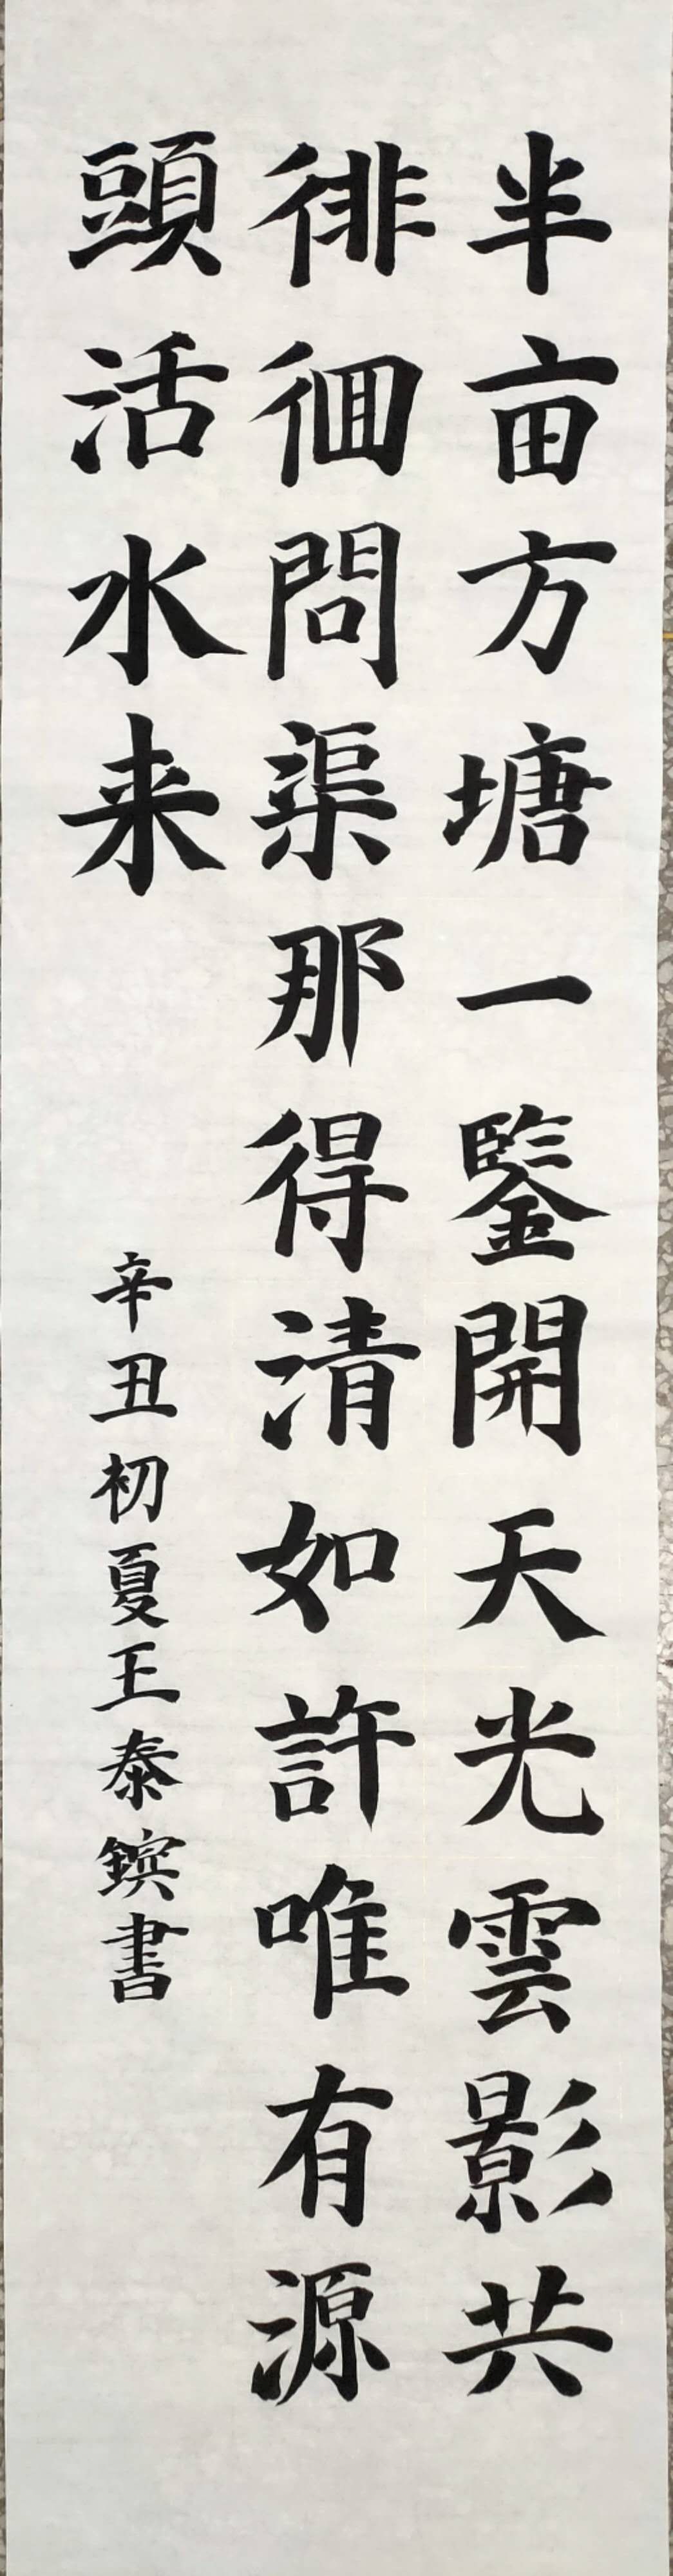 半亩方塘一鑒開天光雲影共
徘徊問渠那得清如許唯有源
頭活水来
辛丑初夏王泰鑌書